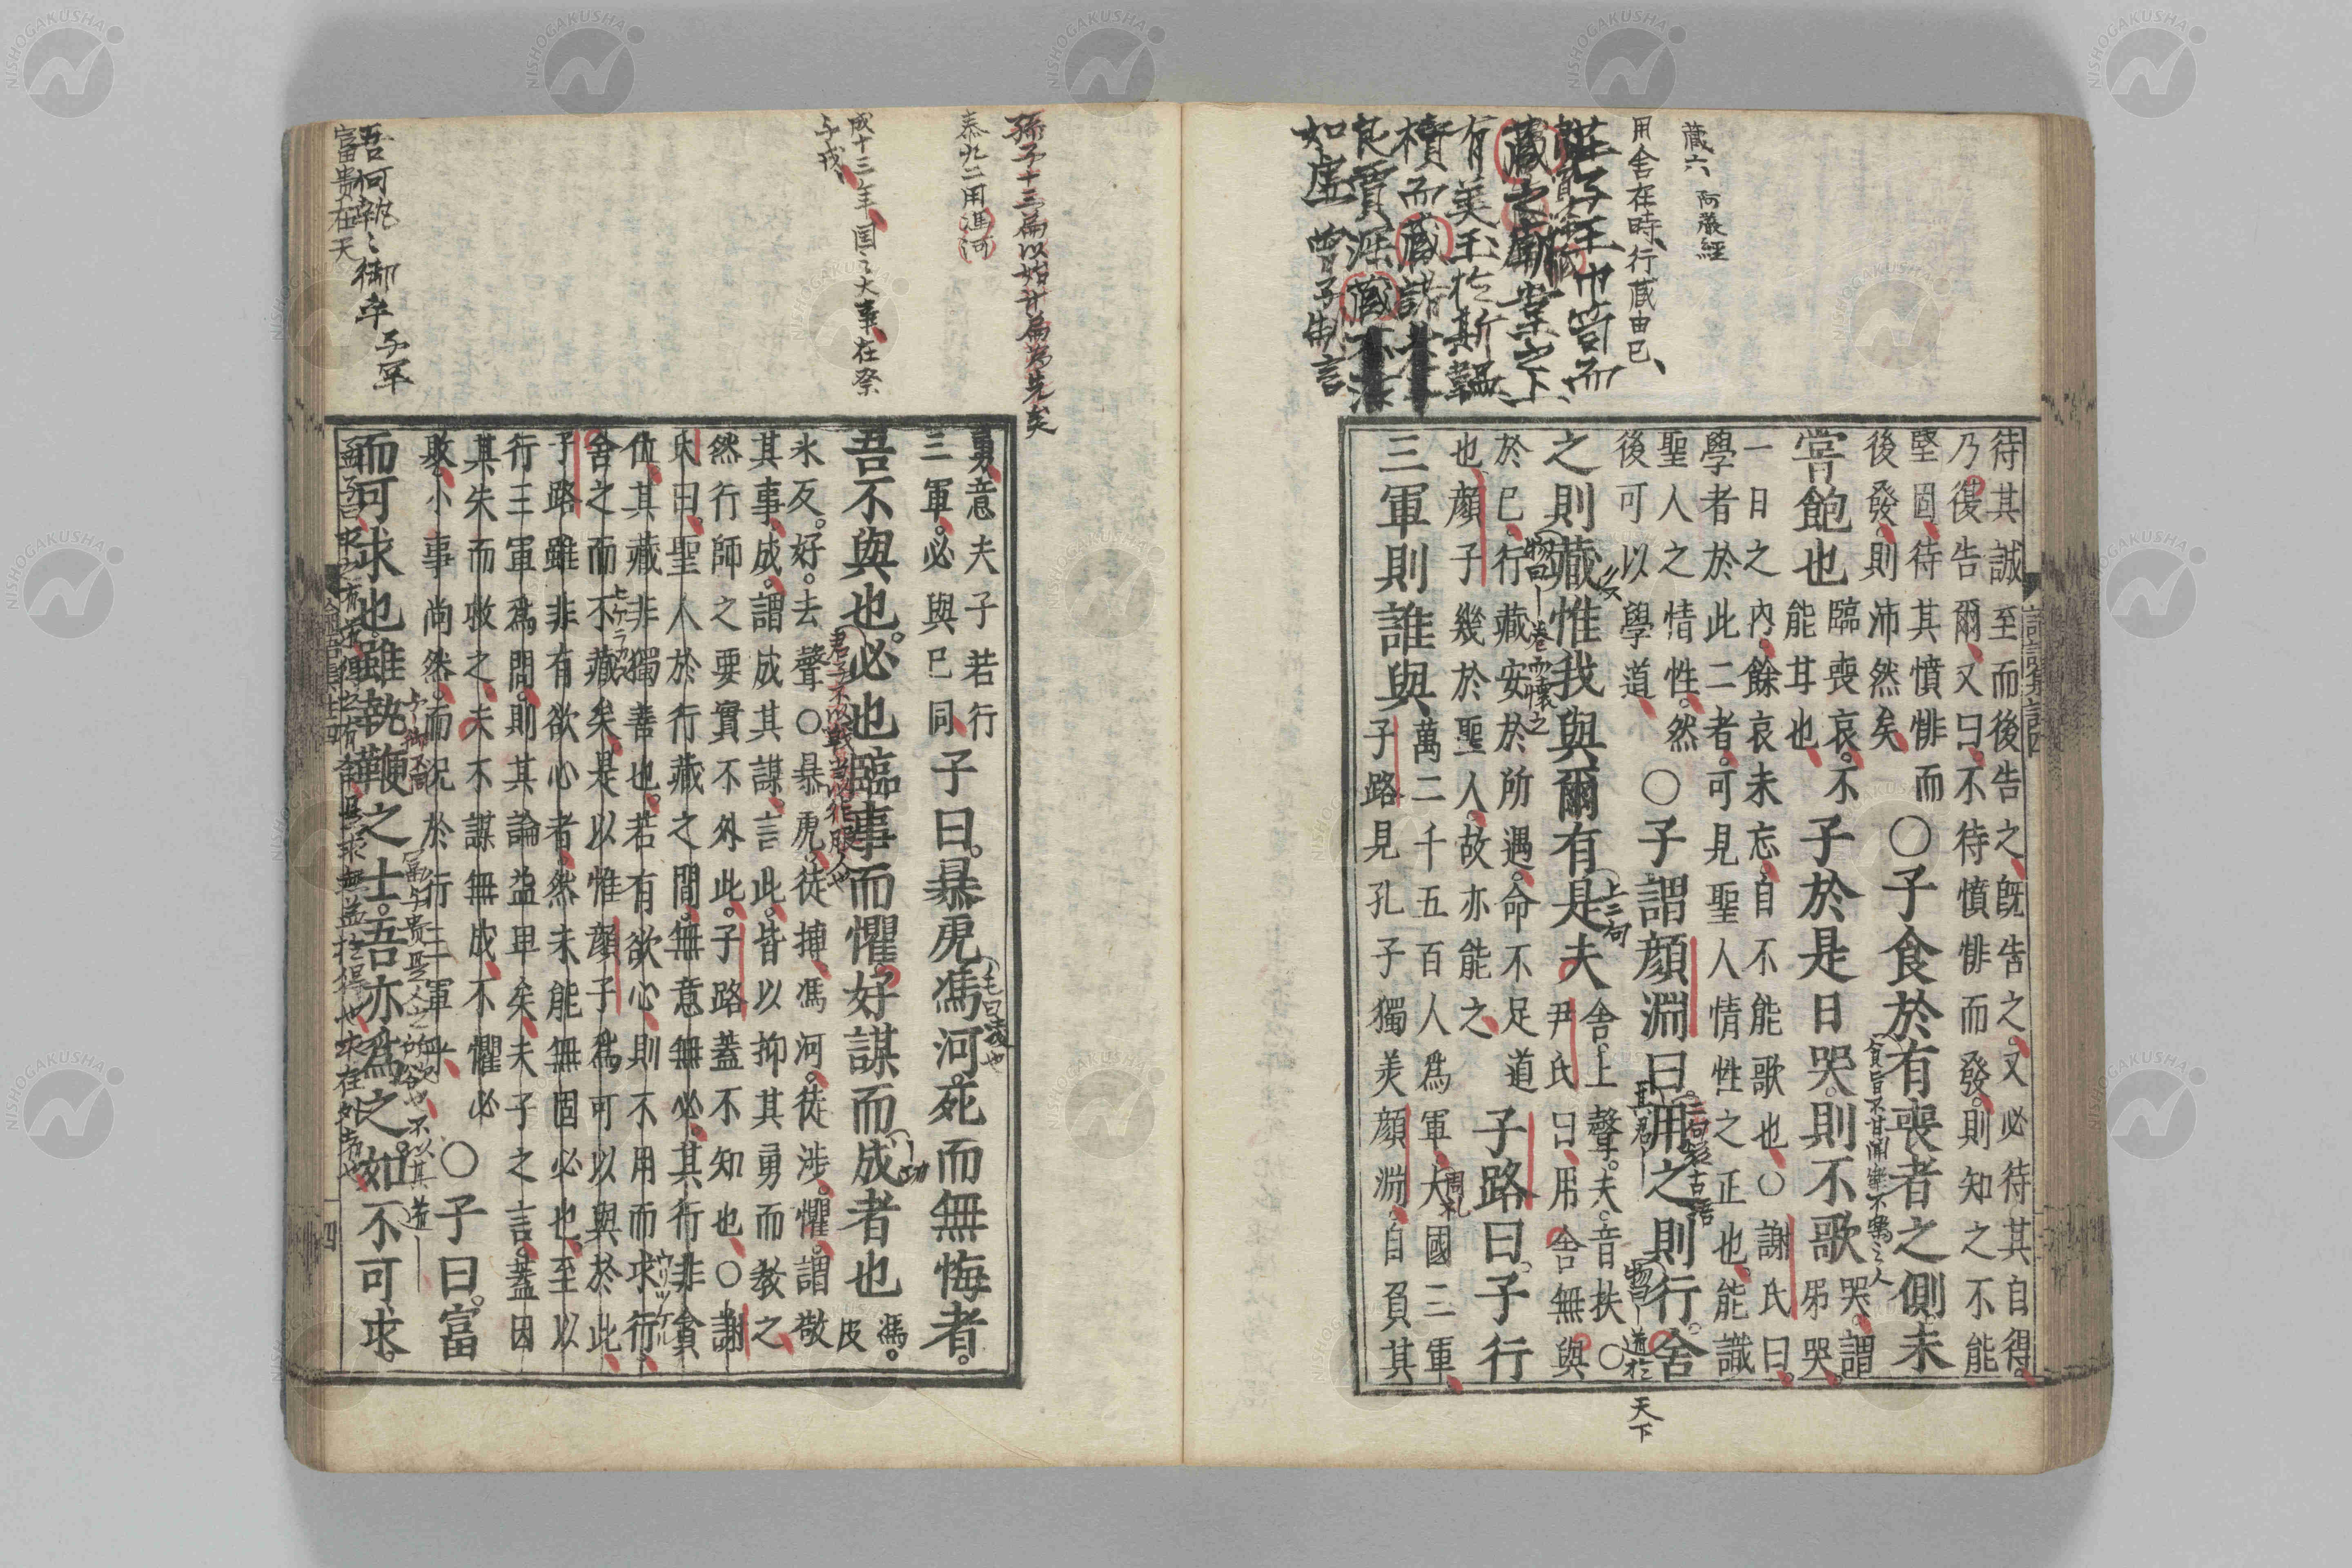 藏六 阿嚴經
用舍在時行藏由己
莊子王巾笥而
藏之廟堂之下
有美玉於斯韞
樻而藏諸
良賈深藏
如虛 曾子制言
待其誠至而後告之旣告之又必待其自得
乃復告爾又曰不待憤悱而發則知之不能
堅固待其憤悱而
後發則沛然矣
〇子食於有喪者之側未
食旨不甘聞樂不樂之人
甞飽也
臨喪哀不
能甘也
子於是日哭則不歌
哭謂
弔哭
一日之內餘哀未忘自不能歌也〇謝氏曰
學者於此二者可見聖人情性之正也能識
聖人之情性然
後可以學道
〇子謂顔淵曰用之則行舍
二句蓋古語
天下
之則藏惟我與爾有是夫
上二句
卷而懷之
舍上聲夫音扶〇
尹氏曰用舍無與
於已行藏安於所遇命不足道
也顔子幾於聖人故亦能之
子路曰子行
三軍則誰與
萬二千五百人爲軍大國三軍
周礼
子路見孔子獨美顔淵自負其
孫子十三篇以始計篇為先矣
泰九二用馮河
成十三年国之大事在祭
与戎
吾何執〻御乎 子罕
富貴在天
勇意夫子若行
三軍必與已同
子曰暴虎馮河死而無悔者
吾不與也必也臨事而懼好謀而成者也
馮
皮
氷反好去聲〇暴虎徒搏馮河徒涉懼謂敬
其事成謂成其謀言此皆以抑其勇而教之
然行師之要實不外此子路蓋不知也〇謝
氏曰聖人於行藏之間無意無必其行非貪
位其藏非獨善也若有欲心則不用而求行
舍之而不藏矣是以惟顔子爲可以與於此
子路雖非有欲心者然未能無固必也至以
行三軍爲問則其論益卑矣夫子之言蓋因
其失而救之夫不謀無成不懼必
敗小事尚然而况於行三軍乎
〇子曰富
富与貴是人之所欲也不以其道
而可求也雖執鞭之士吾亦爲之如不可求
四